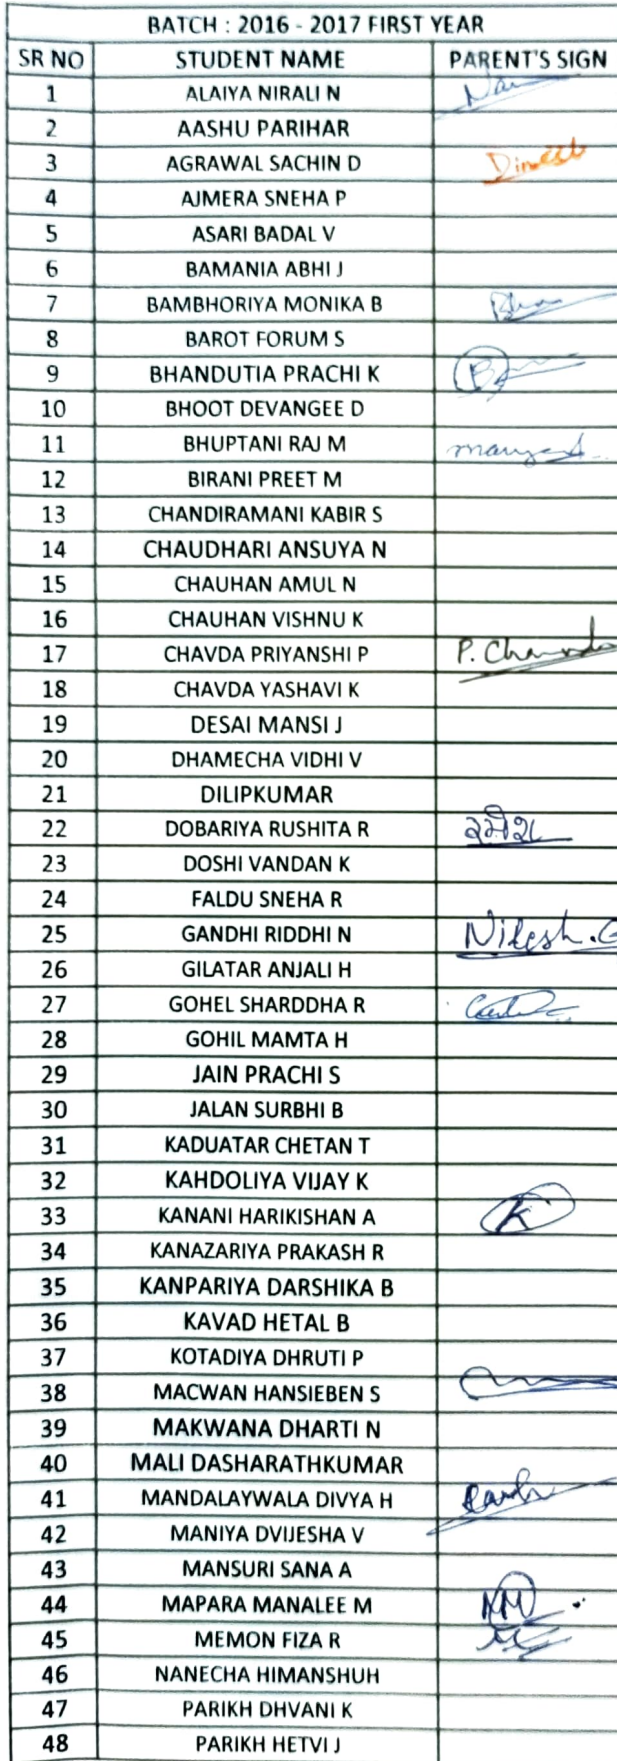 BATCH : 2016 - 2017 FIRST YEAR
SR NO STUDENT NAME PARENT'S SIGN
1 ALAIYA NIRALI N
2 AASHU PARIHAR
3 AGRAWAL SACHIN D Dinesh
4 AJMERA SNEHA P
5 ASARI BADAL V
6 BAMANIA ABHI J
7 BAMBHORIYA MONIKA B
8 BAROT FORUM S
9 BHANDUTIA PRACHI K
10 BHOOT DEVANGEE D
11 BHUPTANI RAJ M
12 BIRANI PREET M
13 CHANDIRAMANI KABIR S
14 CHAUDHARI ANSUYA N
15 CHAUHAN AMUL N
16 CHAUHAN VISHNU K
17 CHAVDA PRIYANSHI P P. Chavda
18 CHAVDA YASHAVI K
19 DESAI MANSI J
20 DHAMECHA VIDHI V
21 DILIPKUMAR
22 DOBARIYA RUSHITA R રમેશ
23 DOSHI VANDAN K
24 FALDU SNEHA R
25 GANDHI RIDDHI N Nilesh. G
26 GILATAR ANJALI H
27 GOHEL SHARDDHA R
28 GOHIL MAMTA H
29 JAIN PRACHI S
30 JALAN SURBHI B
31 KADUATAR CHETAN T
32 KAHDOLIYA VIJAY K
33 KANANI HARIKISHAN A K
34 KANAZARIYA PRAKASH R
35 KANPARIYA DARSHIKA B
36 KAVAD HETAL B
37 KOTADIYA DHRUTI P
38 MACWAN HANSIEBEN S
39 MAKWANA DHARTI N
40 MALI DASHARATHKUMAR
41 MANDALAYWALA DIVYA H
42 MANIYA DVIJESHA V
43 MANSURI SANA A
44 MAPARA MANALEE M
45 MEMON FIZA R
46 NANECHA HIMANSHUH
47 PARIKH DHVANI K
48 PARIKH HETVI J